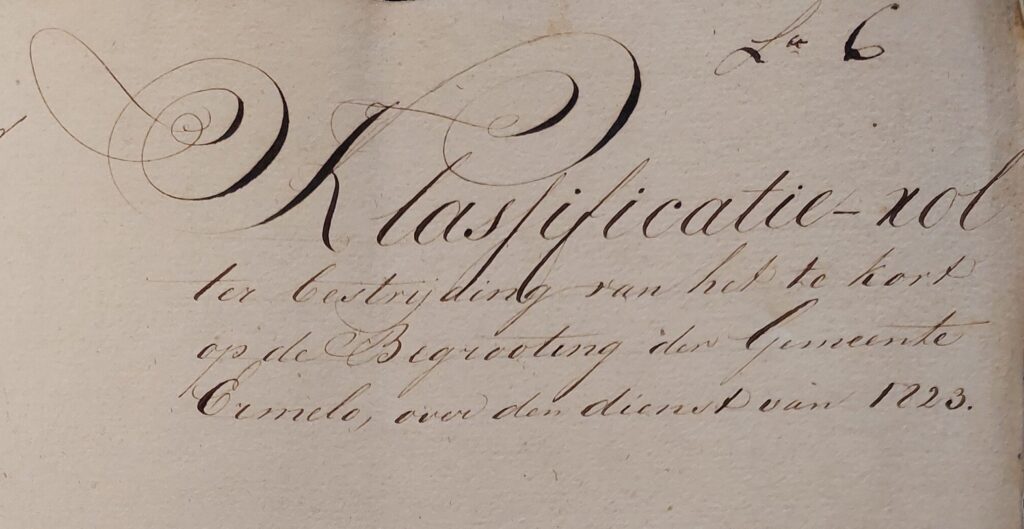 La 6
Klassificatie-rol
ter bestrijding van het te kort
op de Begrooting der Gemeente
Ermelo, over den dienst van 1823.